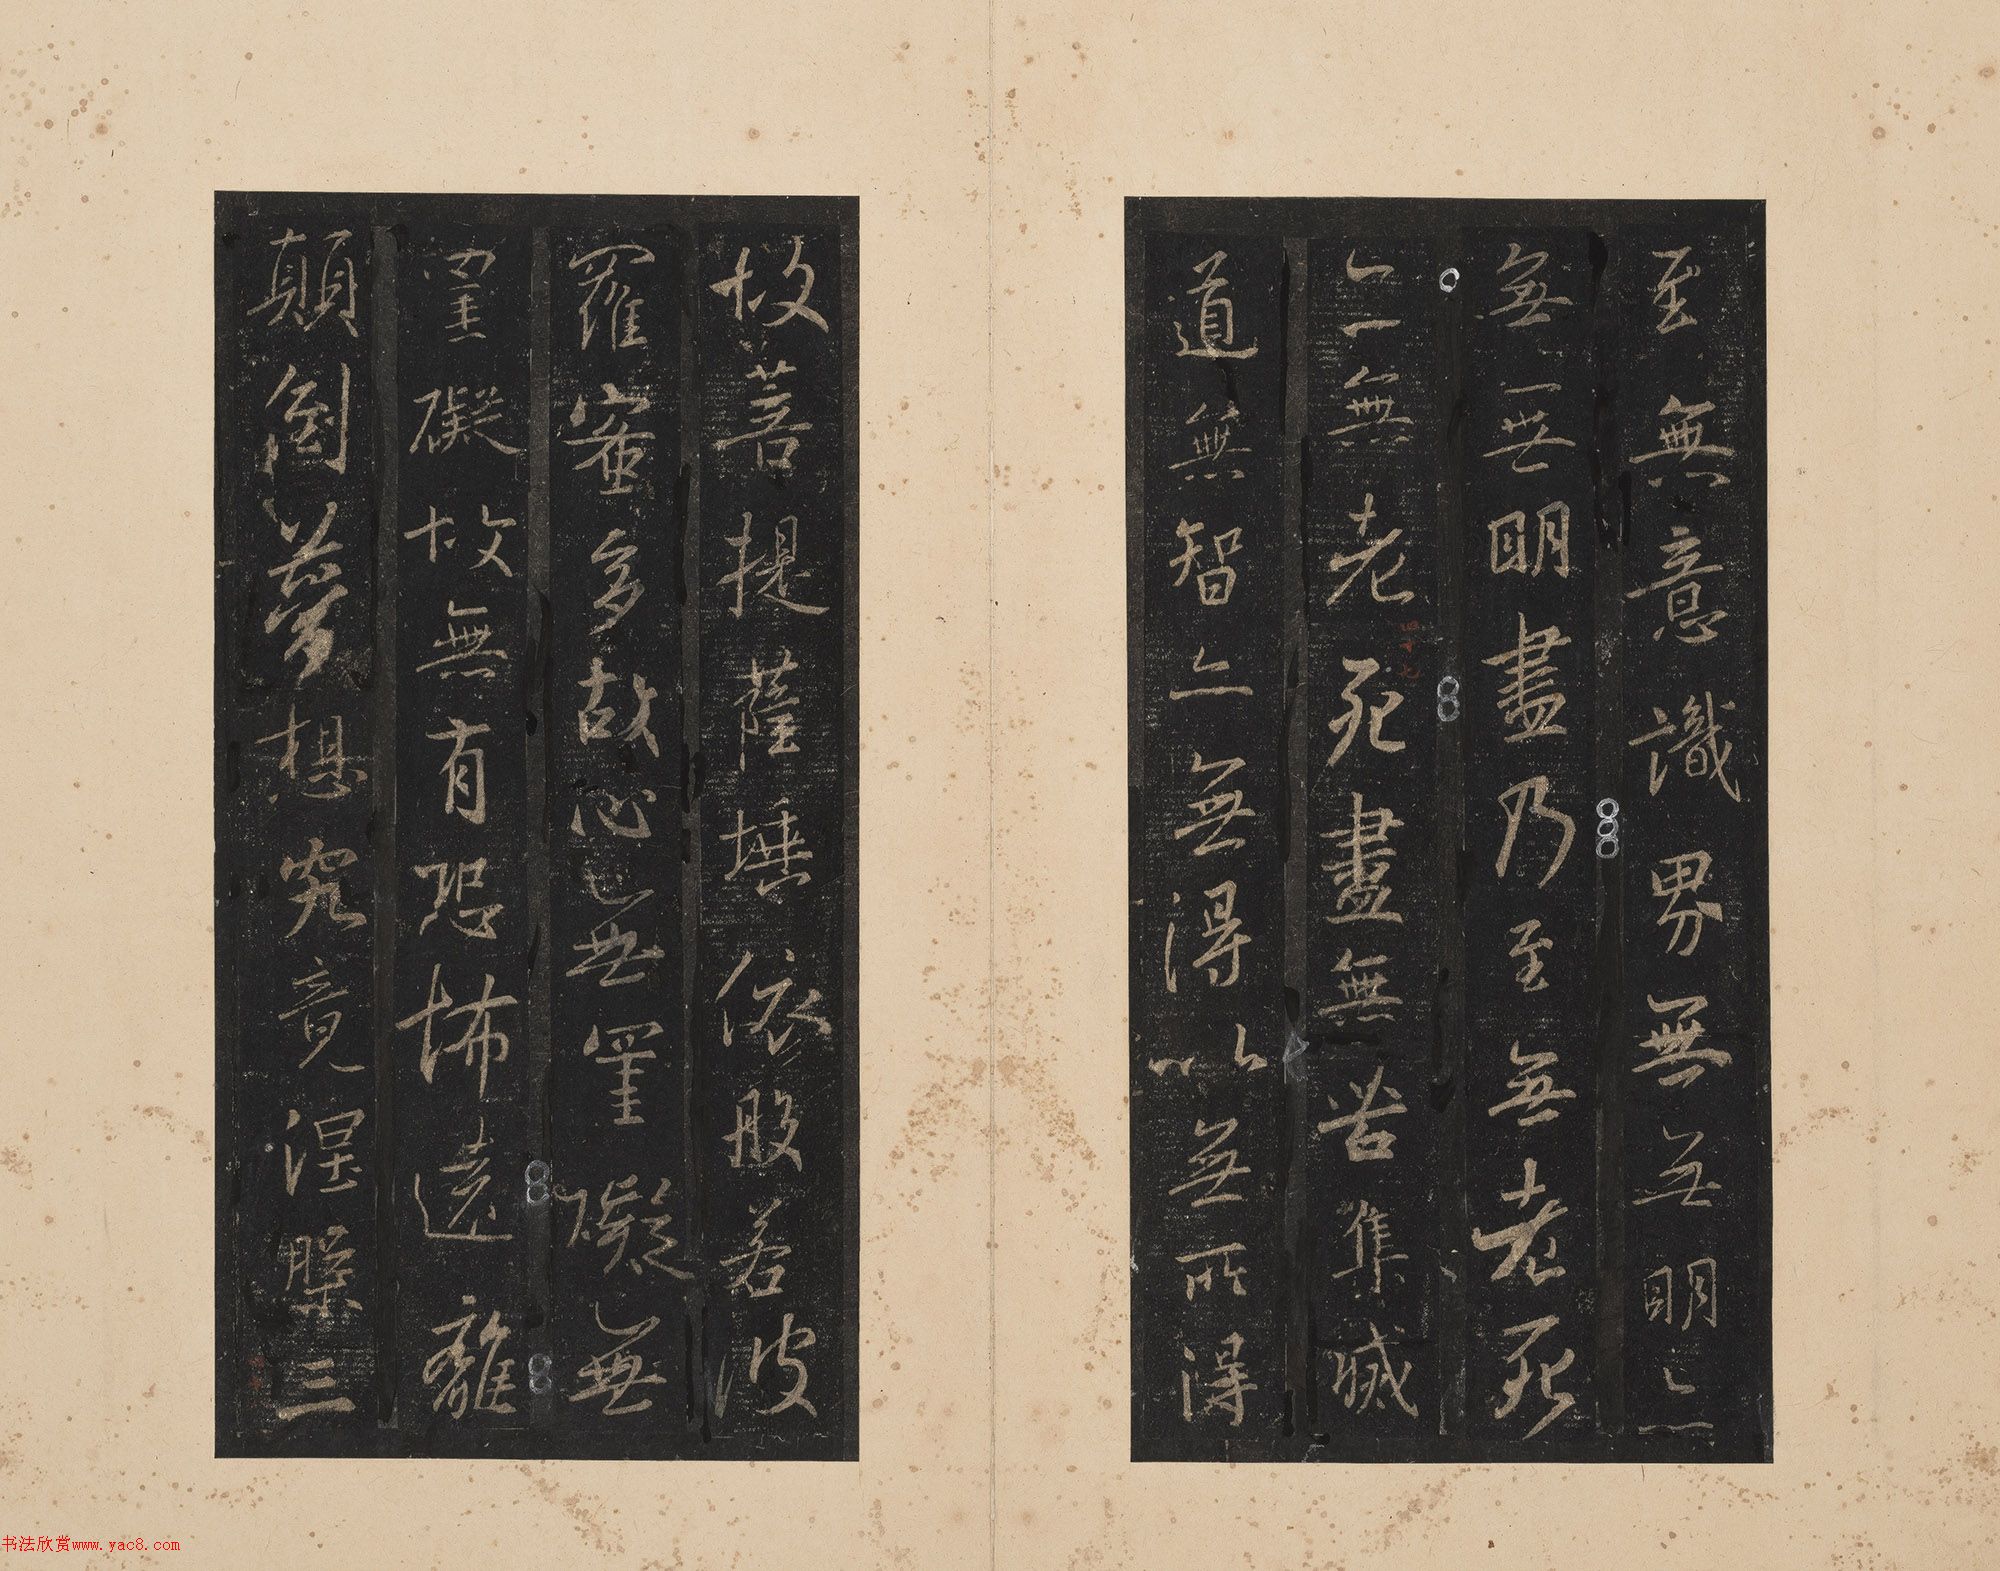 至無意識界無無明亦
無無明盡乃至無老死
亦無老死盡無苦集滅
道無智亦無得以無所得
故菩提薩埵依般若波
羅蜜多故心無罣礙無
罣礙故無有恐怖遠離
顛倒夢想究竟涅槃三
四十七
书法欣赏www.yac8.com